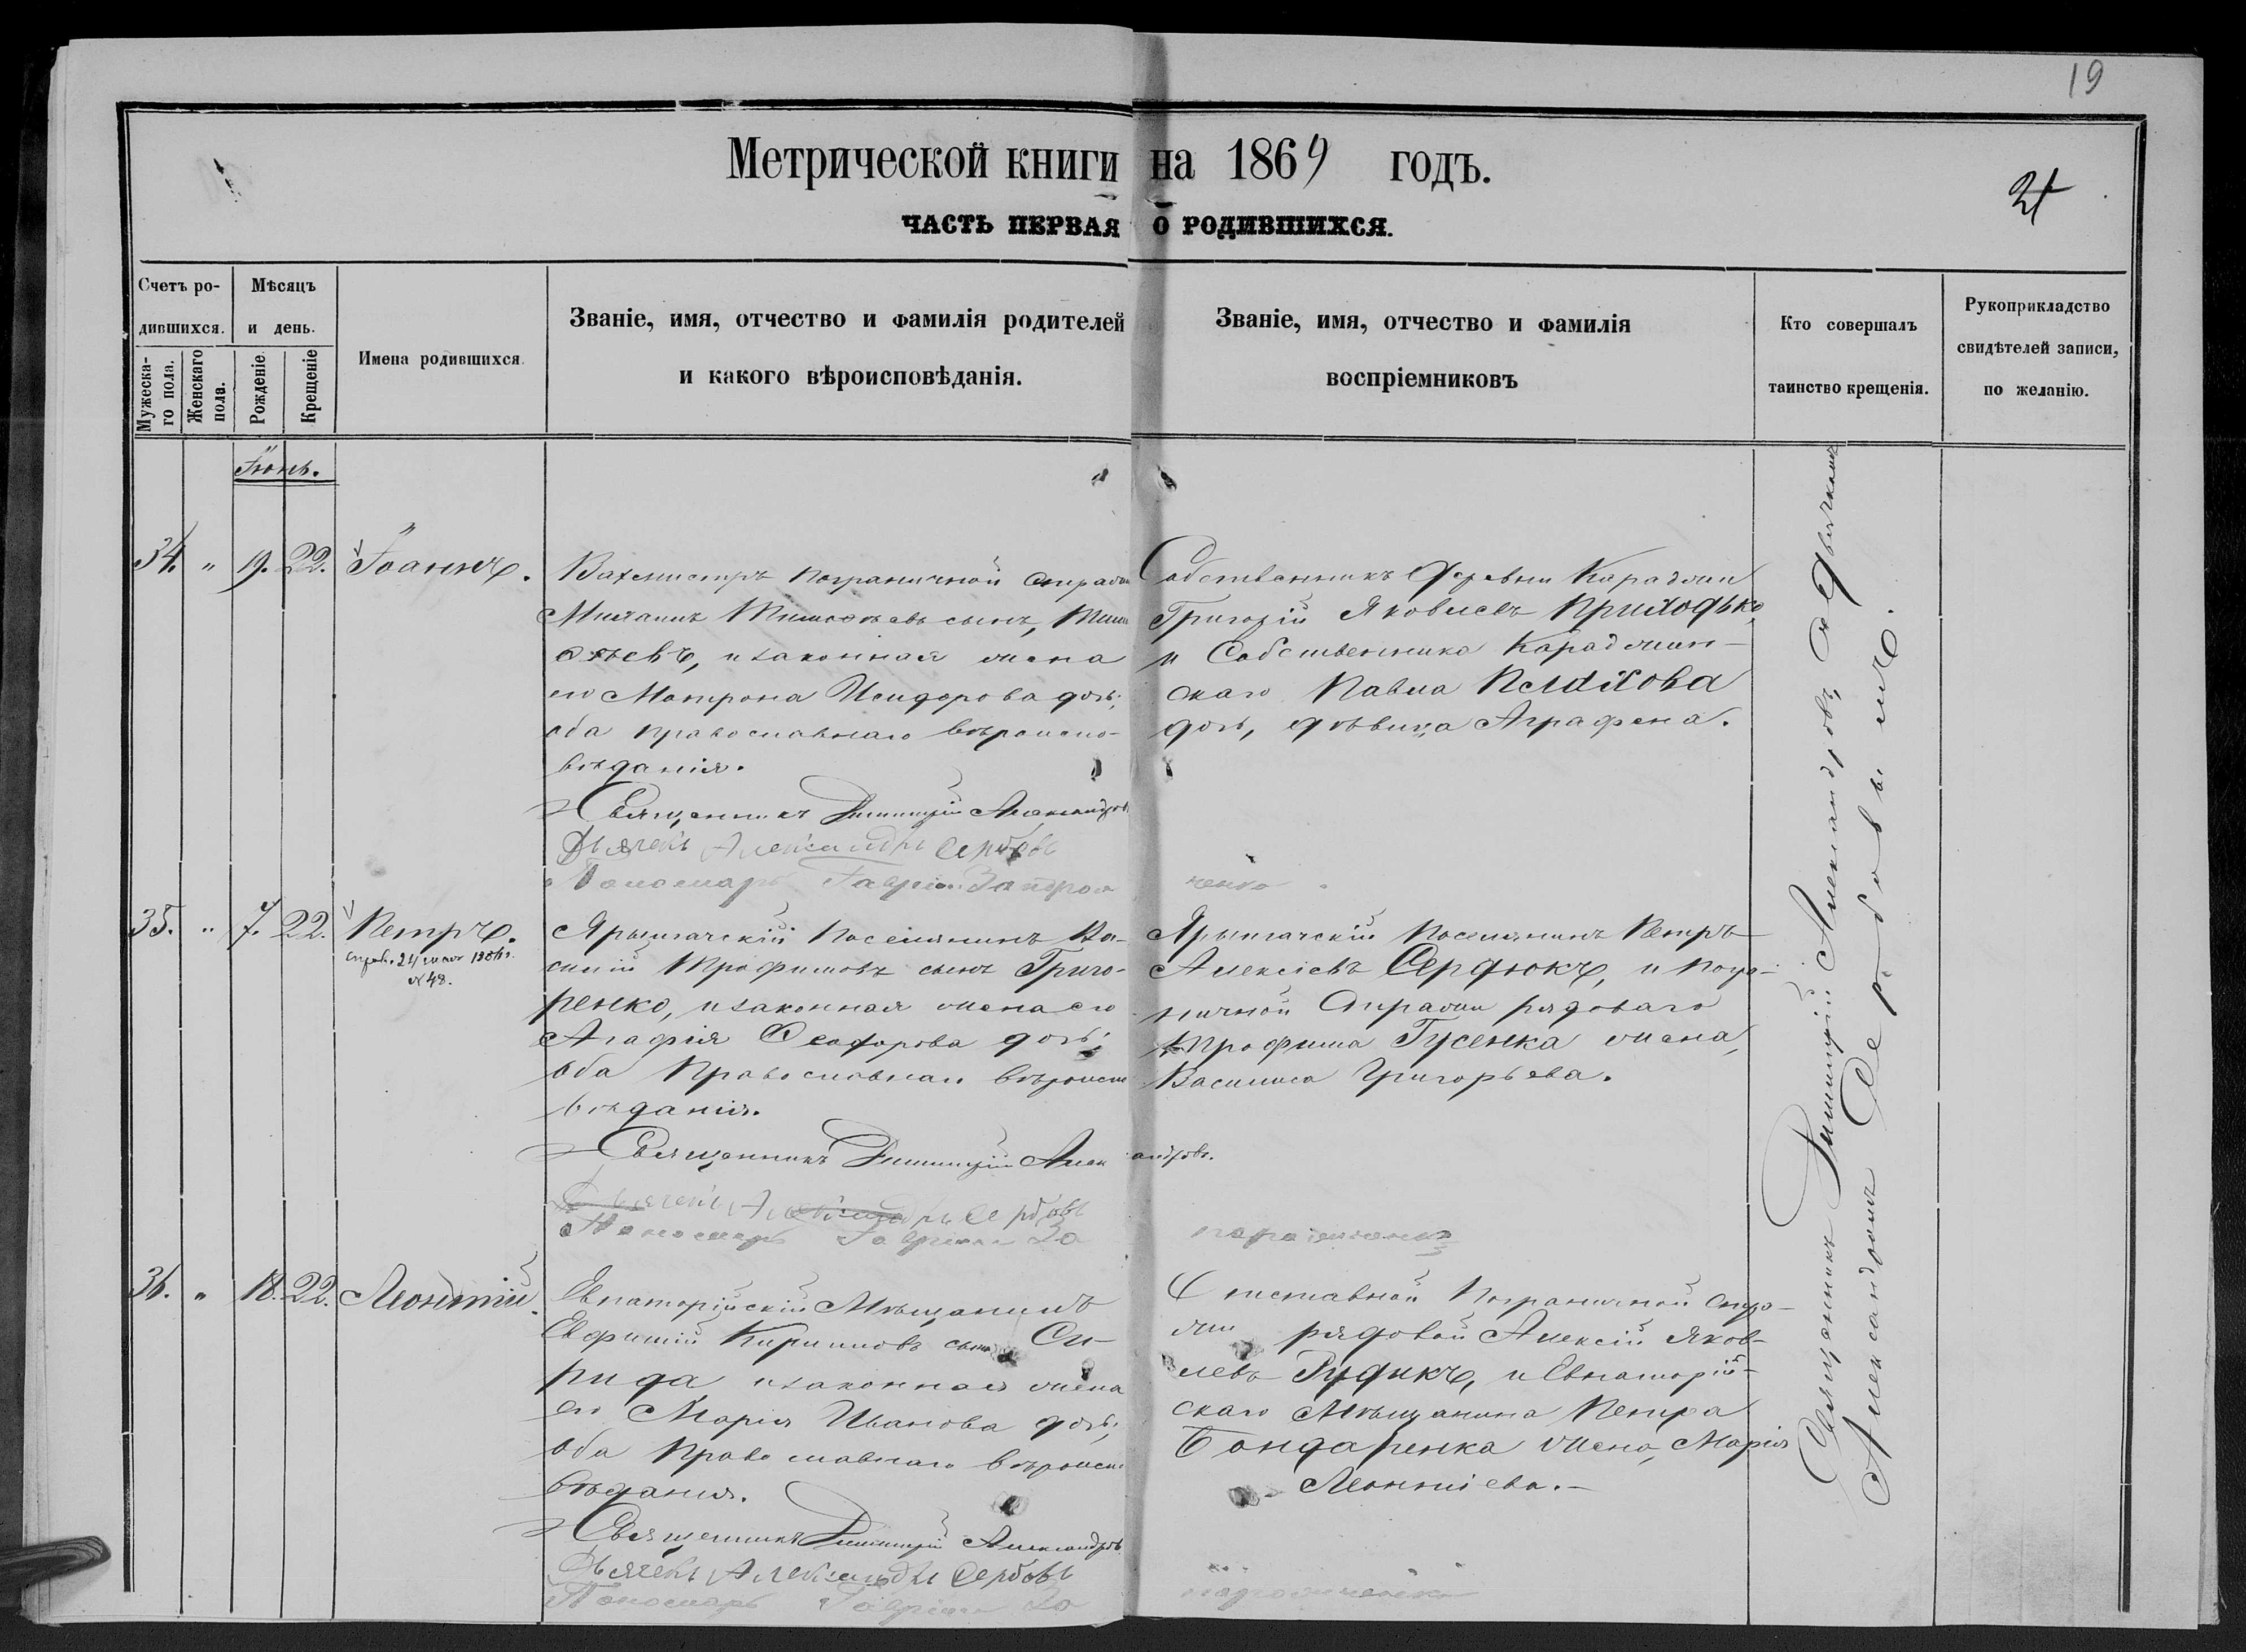 19
Метрической книги на 1869 годъ.
21
ЧАСТЬ ПЕРВАЯ О РОДИВШИХСЯ.
Счетъ родившихся.
Мужескаго пола.
Женскаго пола.
Мѣсяцъ и день.
Рожденіе.
Крещеніе
Имена родившихся.
Званіе, имя, отчество и фамилія родителей
и какого вѣроисповѣданія.
Званіе, имя, отчество и фамилія
воспріемниковъ
Кто совершалъ
таинство крещенія.
Рукоприкладство
свидѣтелей записи,
по желанію.
Іюнь.
34. " 19. 22. Іоаннъ.
Вахмистръ пограничной стражи
сынъ,
и законная жена
его Матрона Исидорова дочь;
оба православнаго вѣроиспо-
вѣданія.
Священникъ Димитрій Александровъ
Дьячекъ Александръ Сербовъ
Пономарь Гавріилъ
Собственникъ деревни
Григорій Яковлевъ Приходько,
и Собственника
скаго Павла
дочь, дѣвица Аграфена.
35. " 7. 22. Петръ.
справ. 24 мая
№ 48.
Ярылгачскій поселянинъ Ва-
силій Трофимовъ сынъ Григо-
ренко, и законная жена его
Агафія Феодорова дочь;
оба Православнаго вѣроиспо
вѣданія.
Священникъ Димитрій Александровъ.
Дьячекъ Александръ Сербовъ
Пономарь Гавріилъ
Ярылгачскій поселянинъ Петръ
Алексіевъ Сердюкъ, и погра-
ничной Стражи рядоваго
Трофима Гусенка жена,
Василиса Григорьева.
36. " 18. 22. Леонтій.
Евпаторійскій Мѣщанинъ
Евфимій Кирилловъ сынъ Си-
рида, и законная жена
его Марія Иванова дочь;
оба Православнаго вѣроиспо
вѣданія.
Священникъ Димитрій Александровъ
Дьячекъ Александръ Сербовъ
Пономарь Гавріилъ
Отставной Пограничной стра-
жи рядовой Алексій Яков-
левъ Рудикъ, и Евпаторій-
скаго Мѣщанина Петра
Бондаренка жена, Марія
Леонтіева.
Священникъ Димитрій Александровъ, съ Дьячкомъ
Александромъ Сербовымъ.